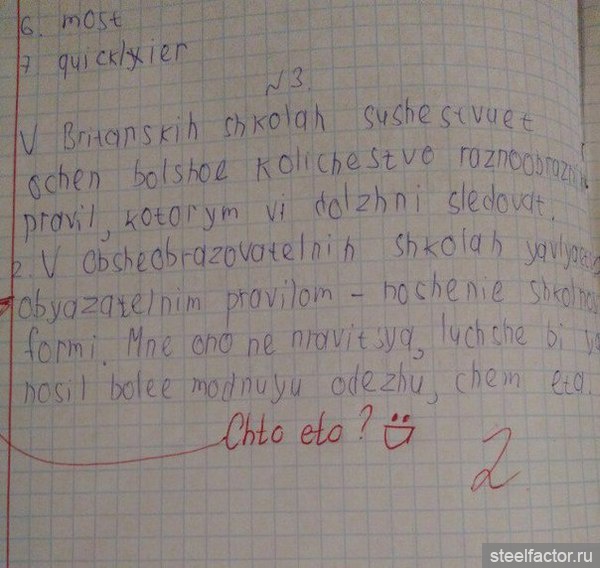 6. most
7 quicklyier
N 3.
V Britanskih shkolah sushestvuet
ochen bolshoe kolichestvo
pravil, kotorym vi dolzhni sledovat.
2. V obsheobrazovatelnih shkolah
obyazatelnim pravilom – noshenie
formi. Mne ono ne nravitsya, luchshe bi ya
nosil bolee modnuyu odezhu, chem eta.
Chto eto?
2
steelfactor.ru